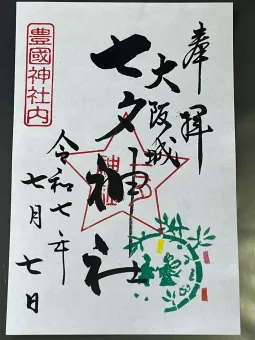 奉拝
大阪城
七夕神社
令和七年
七月七日
豊國神社内